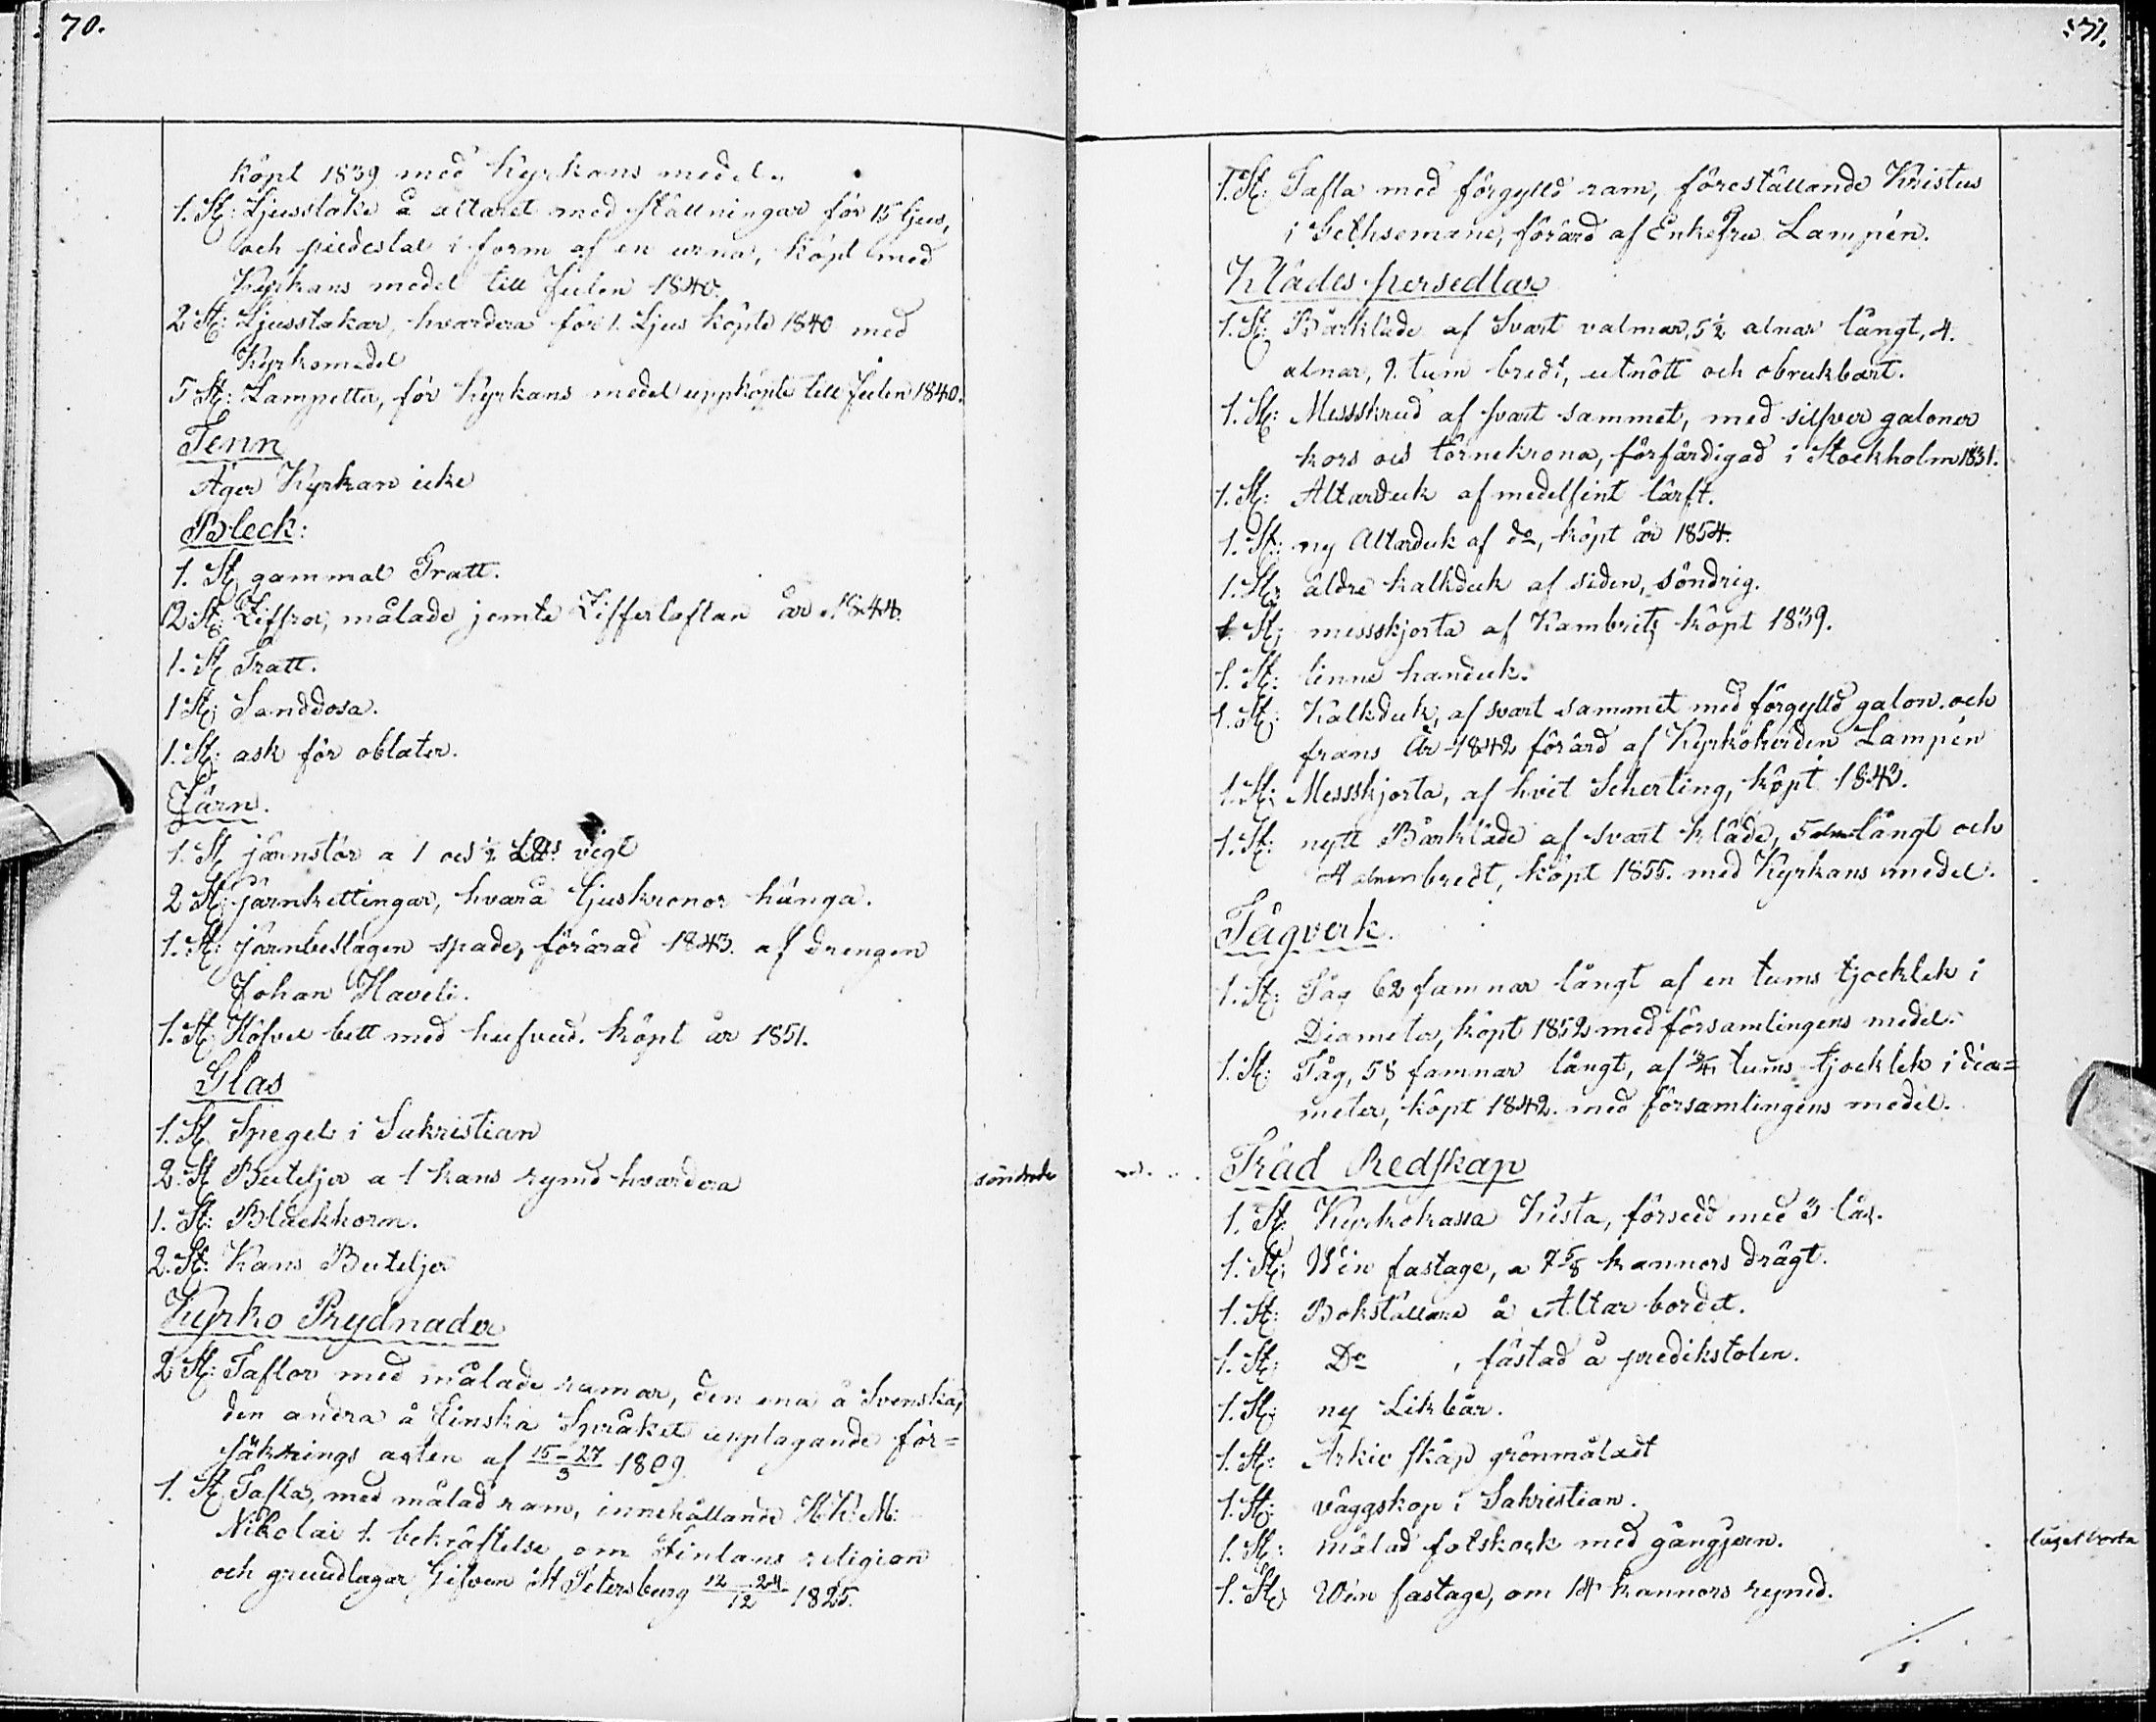 70.
köpt 1839 med Kyrkans medel.
1. St: Ljusstake å altaret med ställningar för 15 ljus,
och piedestal i form af en urna, köpt med
Kyrkans medel till Julen 1840.
2 St: Ljusstakar, hvardera för 1. Ljus köpte 1840 med
Kyrkomedel
5 St: Lampetter, för Kyrkans medel uppköpte till Julen 1840.
Tenn
Äger Kyrkan icke
Bleck:
1. St gammal Tratt.
12 St: Ziffror, målade jemte Ziffertaflan år 1844.
1. St Tratt.
1 St: Sanddosa.
1. St: ask för oblater.
Järn.
1. St järnstör a 1 och ½ vigt
2 St: järnkettingar, hvarå ljuskronor hänga.
1. St: järnbeslagen spade, förärad 1843. af drengen
Johan Haveli.
1. St Höfvel bett med hufvud. köpt år 1851.
Glas
1. St Spegel i Sakristian
2. St Buteljer a 1 kans rymd hvardera söndrade
1. St: Bläckhorn.
2. St: Kans Buteljer
Kyrko Prydnader
2 St: Taflor med målade ramar, den ena å Svenska,
den andra å Finska Språket upptagande för=
säkrings acten af 15-27/3 1809
1. St Tafla, med målad ram, innehållande H.K.M:
Nikolai 1. bekräftelse om Finlans religion
och grundlagar, Gifven i St Petersburg 12-24/12 1825.
71.
1. St: Tafla med förgylld ram, föreställande Kristus
i Gethsemane, förärd af Enkefru Lampén.
Klädes persedlar
1. St: Bårkläde af Svart valmar, 5½ alnar långt, 4.
alnar, 9. tum bredt, utnött och obrukbart.
1. St: Messskrud af svart sammet, med silfver galoner
kors och törnekrona, förfärdigad i Stockholm 1831.
1. St: Altarduk af medelfint lärft.
1. St: ny Altarduk af do, köpt år 1854.
1. St: äldre kalkduk af siden, söndrig.
1. St: messskjorta af Kambrits köpt 1839.
1. St: linne handuk.
1. St: Kalkduk, af svart sammet med förgylld galon och
frans År 1842 förärd af Kyrkoherden Lampén
1. St: Messskjorta, af hvit Scherting, köpt 1843.
1. St: nytt Bårkläde af svart kläde, 5 alnar långt och
4 alnar bredt, köpt 1855. med Kyrkans medel.
Tågverk.
1. St: Tåg 62 famnar långt af en tums tjocklek i
Diameter, köpt 1852 med församlingens medel.
1. St: Tåg, 58 famnar långt, af ¾ tums tjocklek i dia=
meter, köpt 1842. med församlingens medel.
Träd Redskap
1. St: Kyrkokassa Kista, försedd med 3 lås.
1. St: Win fastage, a 7⅝ kannors drägt.
1. St: Bokställare å Altar bordet.
1. St: Do , fästad å predikstolen.
1. St: ny Likbår.
1. St: Arkiv skåp grönmåladt
1. St: väggskop i Sakristian.
1. St: målad fotskork med gångjern. låget borta
1. St: Win fastage, om 14 kannors rymd.